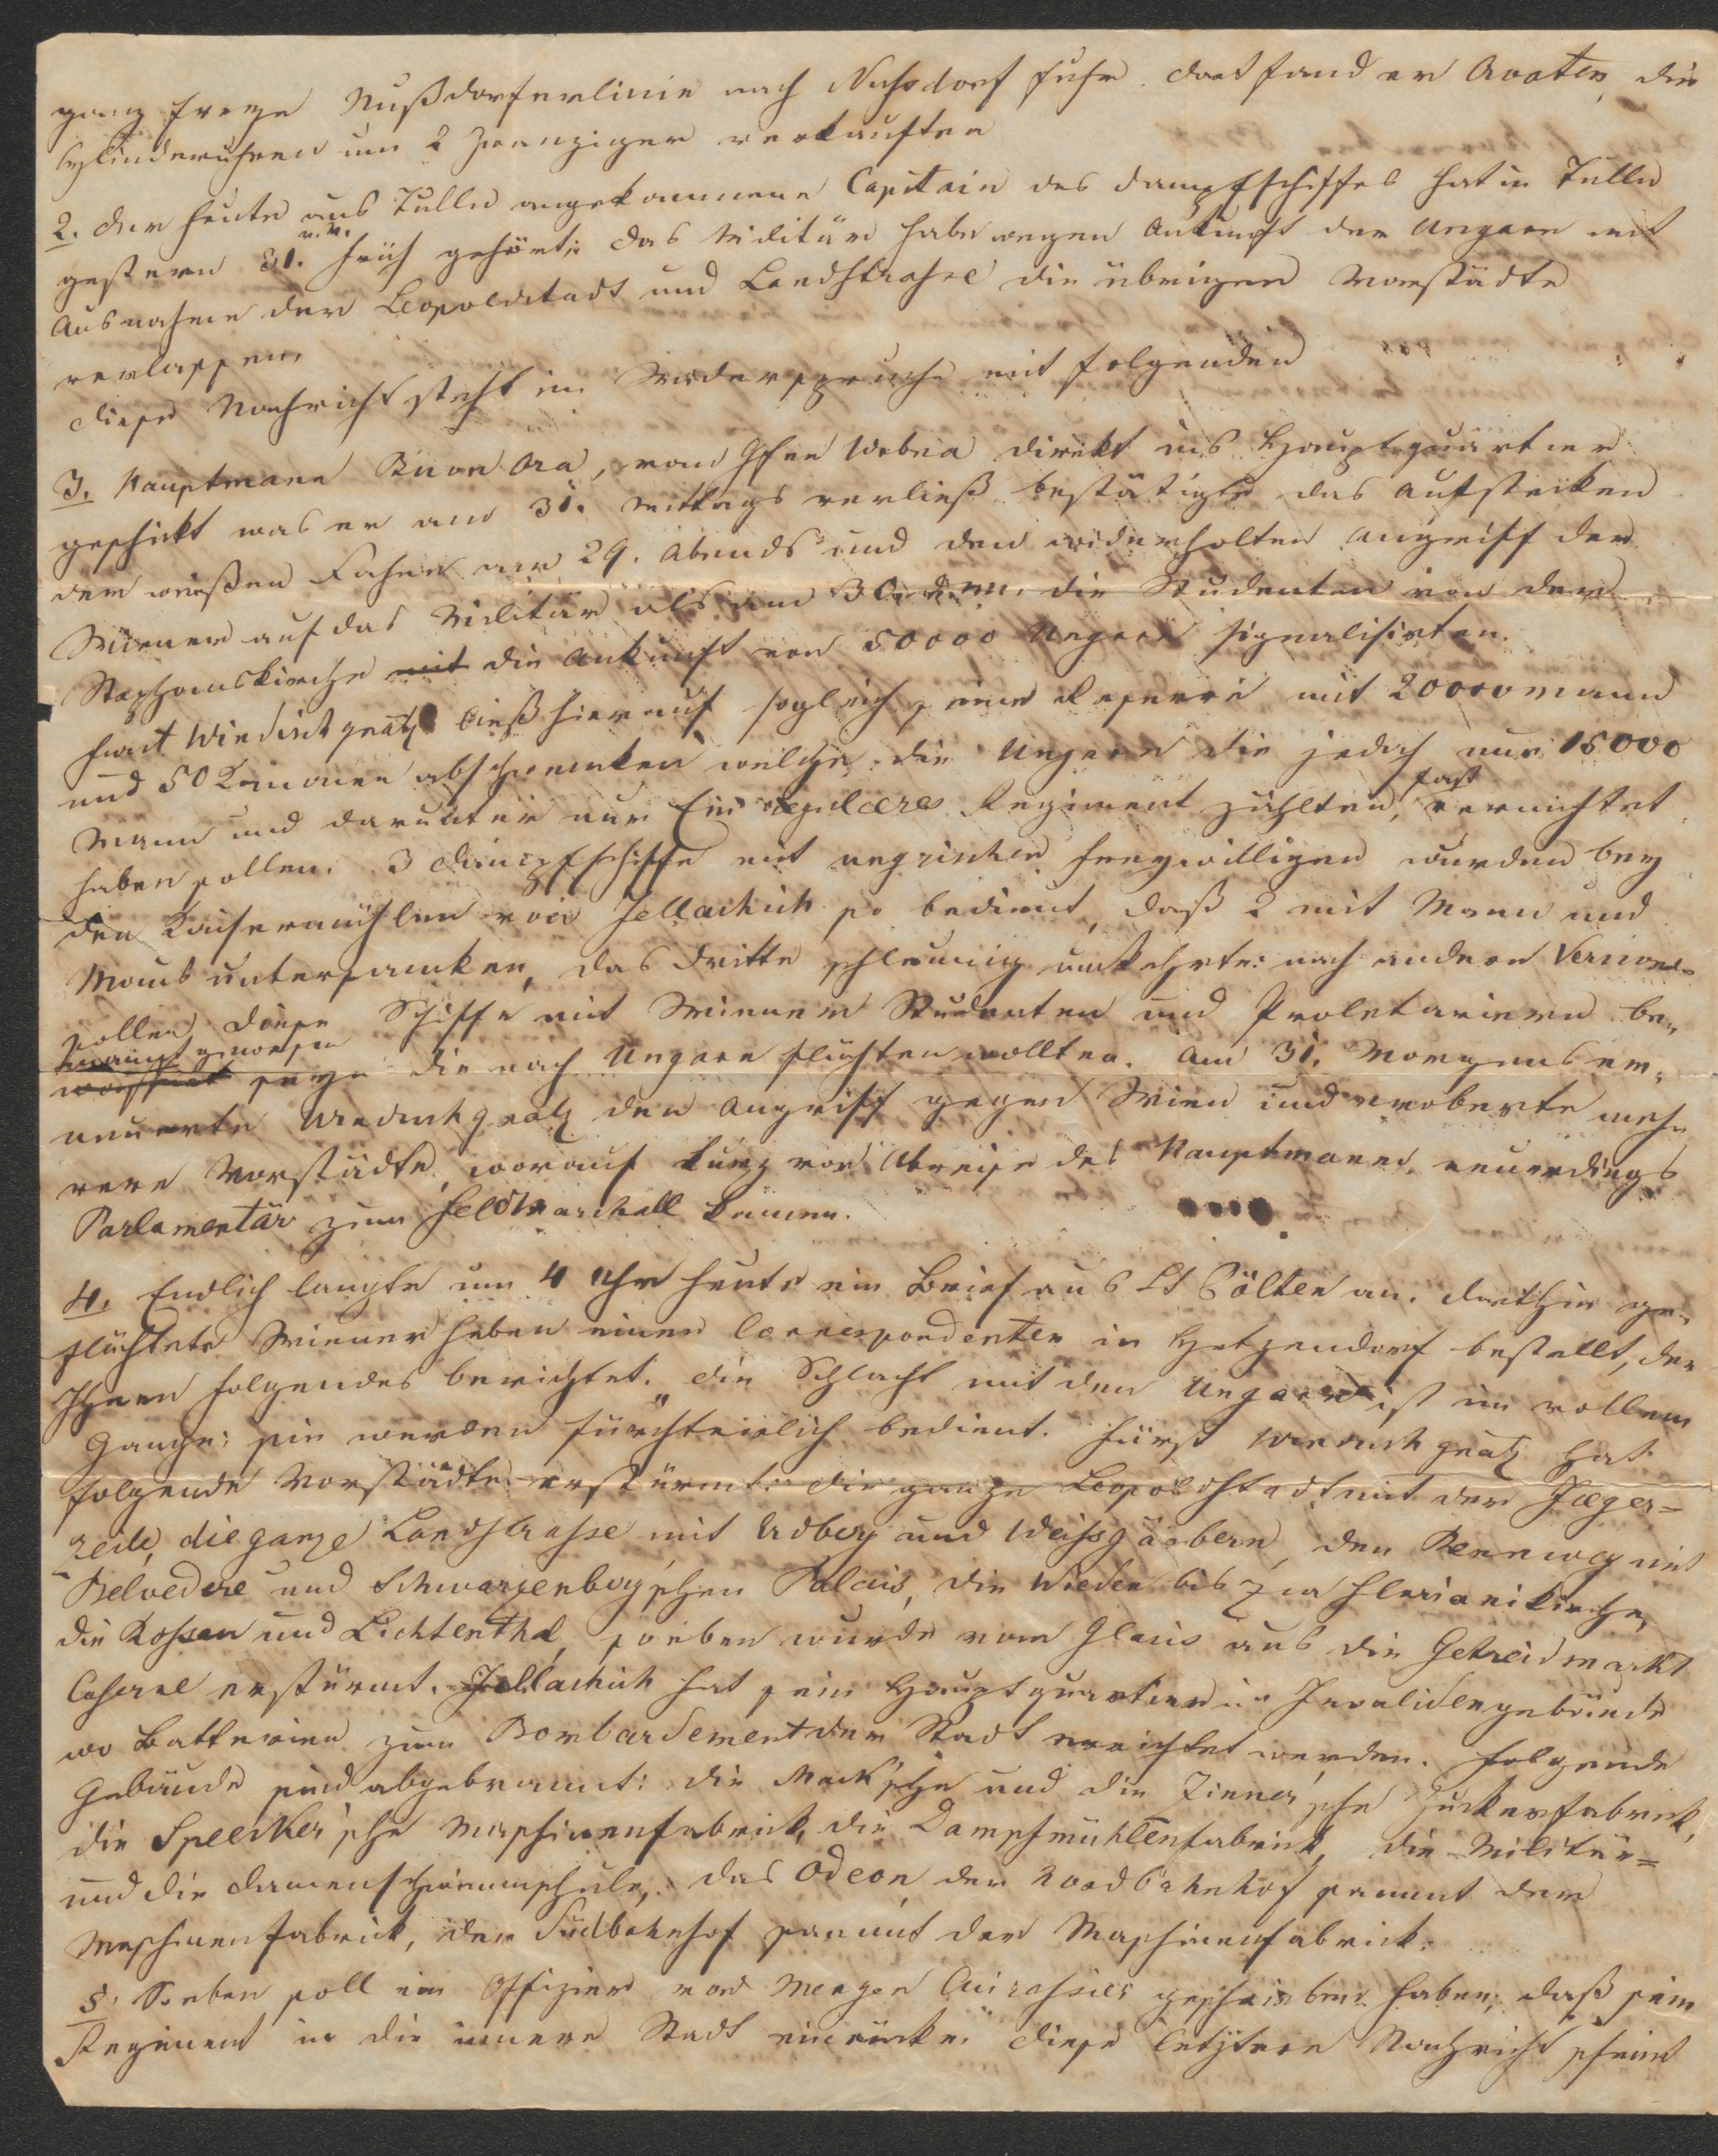 ganz freye Nußdorferlinie nach Nußdorf fuhr. dort fand er Croaten, die
Cylinderuhren um 2 Zwanziger verkauften
2. der heute aus Tulln angekommene Capitain des Dampfschiffes hat in Tulln
gestern 31. v. M. früh gehört: das Militär habe wegen Ankunft der Ungarn mit
Ausnahme der Leopoldstadt und Landstrasse die übrigen Vorstädte
verlassen.
diese Nachricht steht im Widerspruche mit folgenden
3. Hauptmann, vom Gfen Wrbna direkt ins Hauptquartier
geschickt was er am 31. Mittags verließ bestätigte das Aufstecken
der weißen Fahne am 29. Abends und den widerholten Angriff der
Wiener auf das Militär als am 30. d. M. die Studenten von der
Stephanskirche mit die Ankunft von 50000 Ungarn signalisirten.
Fürst Windischgrätz ließ hierauf sogleich seine Reserve mit 20000 Mann
und 50 Kanonen abschwenken welche die Ungarn die jedoch nur 15000
Mann und darunter nur Ein reguläres Regiment zählten, fast vernichtet
haben sollen. 3 Dampfschiffe mit ungrischen Freywilligen wurden bey
den Kaisermühlen von Jellachich so bedient, daß 2 mit Mann und
Maus untersanken, das dritte schleunig umkehrte: nach andern Versionen
sollen diese Schiffe mit Wiener Studenten und Proletariern be-
mannt gewesen seyn die nach Ungarn flüchten wollten. Am 31. Morgens er-
neuerte Windischgrätz den Angriff gegen Wien und eroberte meh-
rere Vorstädte, worauf kurz vor Abreise des Hauptmanns neuerdings
Parlamentär zum Feldmarschall kamen.
4. Endlich langte um 4 Uhr heute ein Brief aus St Pölten an. dorthin ge-
flüchtete Wiener haben einen Correspondenten in Hetzendorf bestellt, der
Ihnen folgendes berichtet. „die Schlacht mit den Ungarn ist im vollem
Gange; sie werden fürchterlich bedient. Fürst Windischgrätz hat
folgende Vorstädte erstürmt: die ganze Leopoldstadt mit der Jaeger-
zeile, die ganze Landstrasse mit Erdberg und Weissgärbern, den Rennweg mit
Belvedere und Schwarzenberg'schen Palais, die Wieden bis zur Florianikirche,
die Rossau und Lichtenthal, soeben wurde vom Glacis aus die Getreidmarkt
Caserne erstürmt. Jellachich hat sein Hauptquartier im Invalidengebäude
wo Batterien zum Bombardement der Stadt errichtet werden. Folgende
Gebäude sind abgebrannt: die Mack'sche und die Zinner'sche Zuckerfabrick,
die Specker'sche Maschinenfabrick, die Dampfmühlenfabrick, die Militär-
und die Damenschwimmschule, das Odeon, der Nordbahnhof sammt der
Maschinenfabrick, der Südbahnhof sammt der Maschinenfabrick.
5. Soeben soll ein Offizier von Mengen Cuirassier geschrieben haben, daß sein
Regiment in die innere Stadt einrücke. diese letztere Nachricht scheint